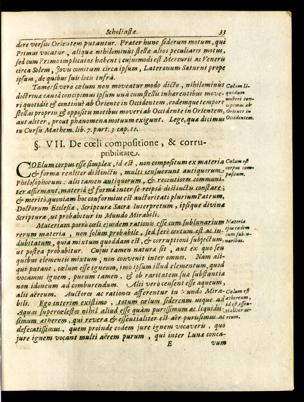 Scholiastæ. 33
dere versùs Orientem putantur. Prater hunc sederum motum, qui
Primus vocatur, aliqua nihilominus stella alios peculiares motus,
sed cum Primo implicatos habent; cujusmodi est Mercurii ac Veneris
circa Solem, Jovis comitum circa ipsum, Lateronum Saturni prope
ipsum, de quibus suis locis infrà.
Tametsi verò cœlum non moveatur modo dicto, nihilominus
doctrinæ causâ concipimus ipsum unà cum stellis inhærentibus move-
ri quotidie & continuè ab Oriente in Occidentem, eodemque tempore
stellas propriis & oppositis motibus moveri ab Occidente in Orientem,
aut aliter, prout phænomena motuum exigunt. Lege, qua dicimus
in Cursu Mathem. lib. 7. part. 3. cap. 11.
§. VII. De cœli compositione, & corru-
ptibilitate.
COElum corpus esse simplex, id est, non compositum ex materia
& forma realiter distinctis, multi senserunt antiquorum
Philosophorum: alii tamen antiquorum, & recentiores communi-
ter affirmant, materiâ & formâ inter se reipsâ distinctis constare;
& meritò, quoniam hoc conformius est auctoritati plurium Patrum,
Doctorum Ecclesiæ, Scriptura Sacra Interpretum, ipsique divina
Scriptura, ut probabitur in Mundo Mirabili.
Materiam porrò cœli ejusdem rationis esse cum sublunarium
rerum materia, non solùm probabile, sed ferè certum est ac in-
dubitatum, quòd mixtum quoddam est, & corruptioni subjectum,
ut postea probabitur. Cujus tamen natura sit, aut ex quo seu
quibus elementis mixtum, non convenit inter omnes. Nam ali-
qui putant, cœlum esse igneum, imò ipsum illud elementum, quod
vocamus ignem, purum tamen, & ob raritatem sua substantia
non idoneum ad comburendum. Alii verò censent esse aqueum,
alii aëreum. Auctores ac rationes afferentur in Mundo Mira-
bili. Ego interim existimo, totum cœlum siderum usque ad
Aquas supercœlestes nihil aliud esse quàm purissimum ac liquidis-
simum ætherem, qui revera & essentialiter est aër purissimus ac
defæcatissimus, quem proinde eodem jure ignem vocaveris, quo
jure ignem vocant multi aërem purum, qui inter Lunæ conca-
E vum
Cœlum
concipimus ab
Occidentem.
Cœlum est
corpus com-
positum.
Materia
ejus eadem
cum sublu-
naribus.
Cœlum est
æthereum,
id est essen-
tialiter aë-
reum.